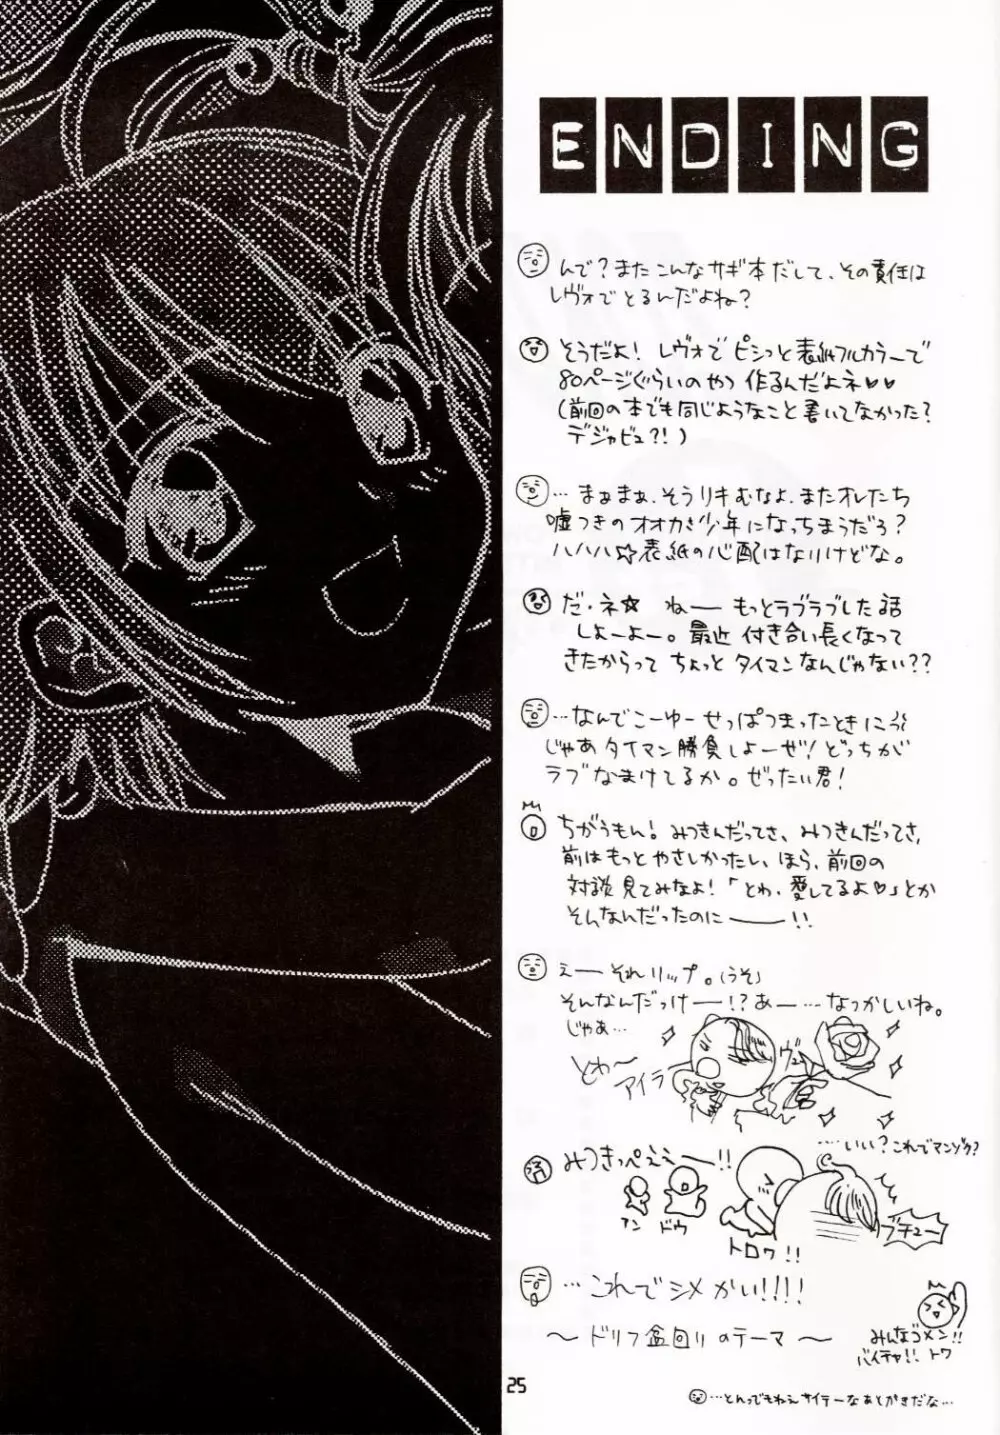 ENDING
んで？またこんなサギ本だして、その責任は
レヴォでとるんだよね？
そうだよ！レヴォでピシっと表紙フルカラーで
80ページぐらいのやつ作るんだよネ♡♡
（前回の本でも同じようなこと書いてなかった？
デジャビュ？！）
…まぁまぁ、そうリキむなよ、またオレたち
嘘つきのオオカミ少年になっちまうだろ？
ハハハ☆表紙の心配はないけどな。
だ・ネ☆ ねーもっとラブラブした話
しよーよー。最近付き合い長くなって
きたからってちょっとタイマンなんじゃない？？
…なんでこーゆーせっぱつまったときに
じゃあタイマン勝負しよーぜ！どっちが
ラブなまけてるか。ぜったい君！
ちがうもん！みつきんだってさ、みつきんだってさ、
前はもっとやさしかったし、ほら、前回の
対談見てみなよ！「とわ、愛してるよ♡」とか
そんなんだったのに――！！
えーそれリップ。（うそ）
そんなんだっけー！？あー…なつかしいね。
じゃあ…
とわ～
アイラ
ヴュ
…いい？これでマンゾク？
みつきっぺぇぇー！！
アン
ドウ
トロワ！！
ブチュー
…これでシメかい！！！！
～ドリフ盆回りのテーマ～
みんなゴメン！！
バイチャ！！トワ
25
…とんでもねぇサイテーなあとがきだな…